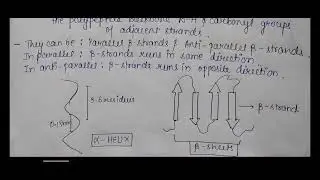 the polypeptide backbone N-H & carbonyl groups
of adjacent strands.
- They can be : Parallel β-strands & Anti-parallel β-strands
In parallel : β-strands runs in same direction.
In anti-parallel : β-strands runs in opposite direction.
3.6 residues
β-strand
α-HELIX
β-sheets